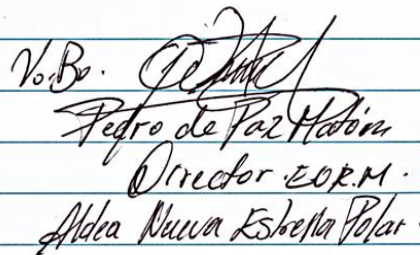 Vo.Bo.
Pedro de Paz Matóm
Director E.O.R.M.
Aldea Nueva Estrella Polar.